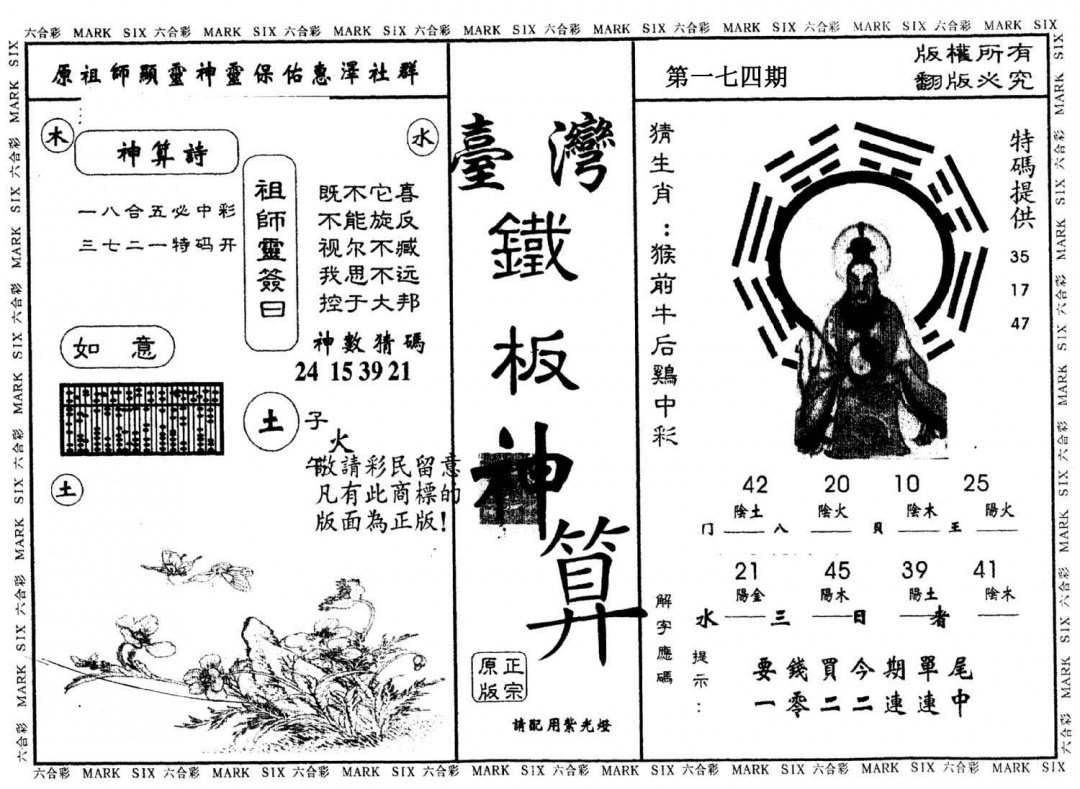 六合彩 MARK SIX 六合彩 MARK SIX 六合彩 MARK SIX 六合彩 MARK SIX 六合彩 MARK SIX 六合彩 MARK SIX 六合彩 MARK SIX 六合彩 MARK SIX
原祖師顯靈神靈保佑惠澤社群
木
神算詩
水
一八合五必中彩
三七二一特码开
祖師靈簽曰
既不它喜
不能旋反
视尔不臧
我思不远
控于大邦
神數猜碼
24 15 39 21
如意
土
子
火
午
敬請彩民留意
凡有此商標的
版面為正版!
土
臺灣
鐵
板
神
算
正宗
原版
請配用紫光燈
第一七四期
版權所有
翻版必究
猜生肖：猴前牛后鷄中彩
特碼提供
35
17
47
42 20 10 25
陰土 陰火 陰木 陽火
门 八 貝 王
21 45 39 41
陽金 陽木 陽土 陰木
水 三 日 者
解字應碼
提示：
要錢買今期單尾
一零二二連連中
六合彩 MARK SIX 六合彩 MARK SIX 六合彩 MARK SIX 六合彩 MARK SIX 六合彩 MARK SIX 六合彩 MARK SIX 六合彩 MARK SIX 六合彩 MARK SIX